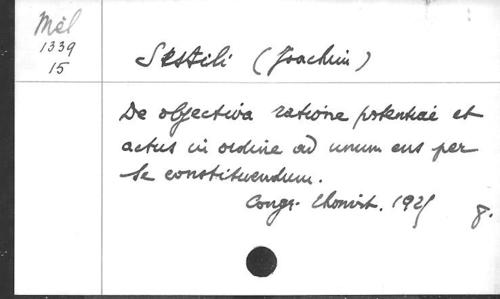 Mél
1339
15
Sestili (Joachim)
De objectiva ratione potentiae et
actus in ordine ad unum ens per
se constituendum.
Congr. thomist. 1925
8.